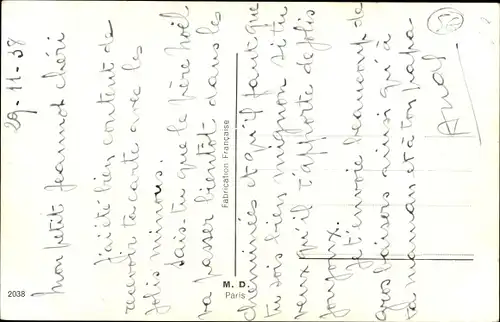 29-11-38
Mon petit Jeannot chéri
J'ai été bien content de
recevoir ta carte avec les
jolis minous.
Sais-tu que le père noël
va passer bientôt dans les
cheminées et qu'il faut que
tu sois bien mignon si tu
veux qu'il t'apporte de jolis
joujoux.
Je t'envoie beaucoup de
gros baisers ainsi qu'à
ta maman et à ton papa.
2038
M. D.
Paris
Fabrication Française